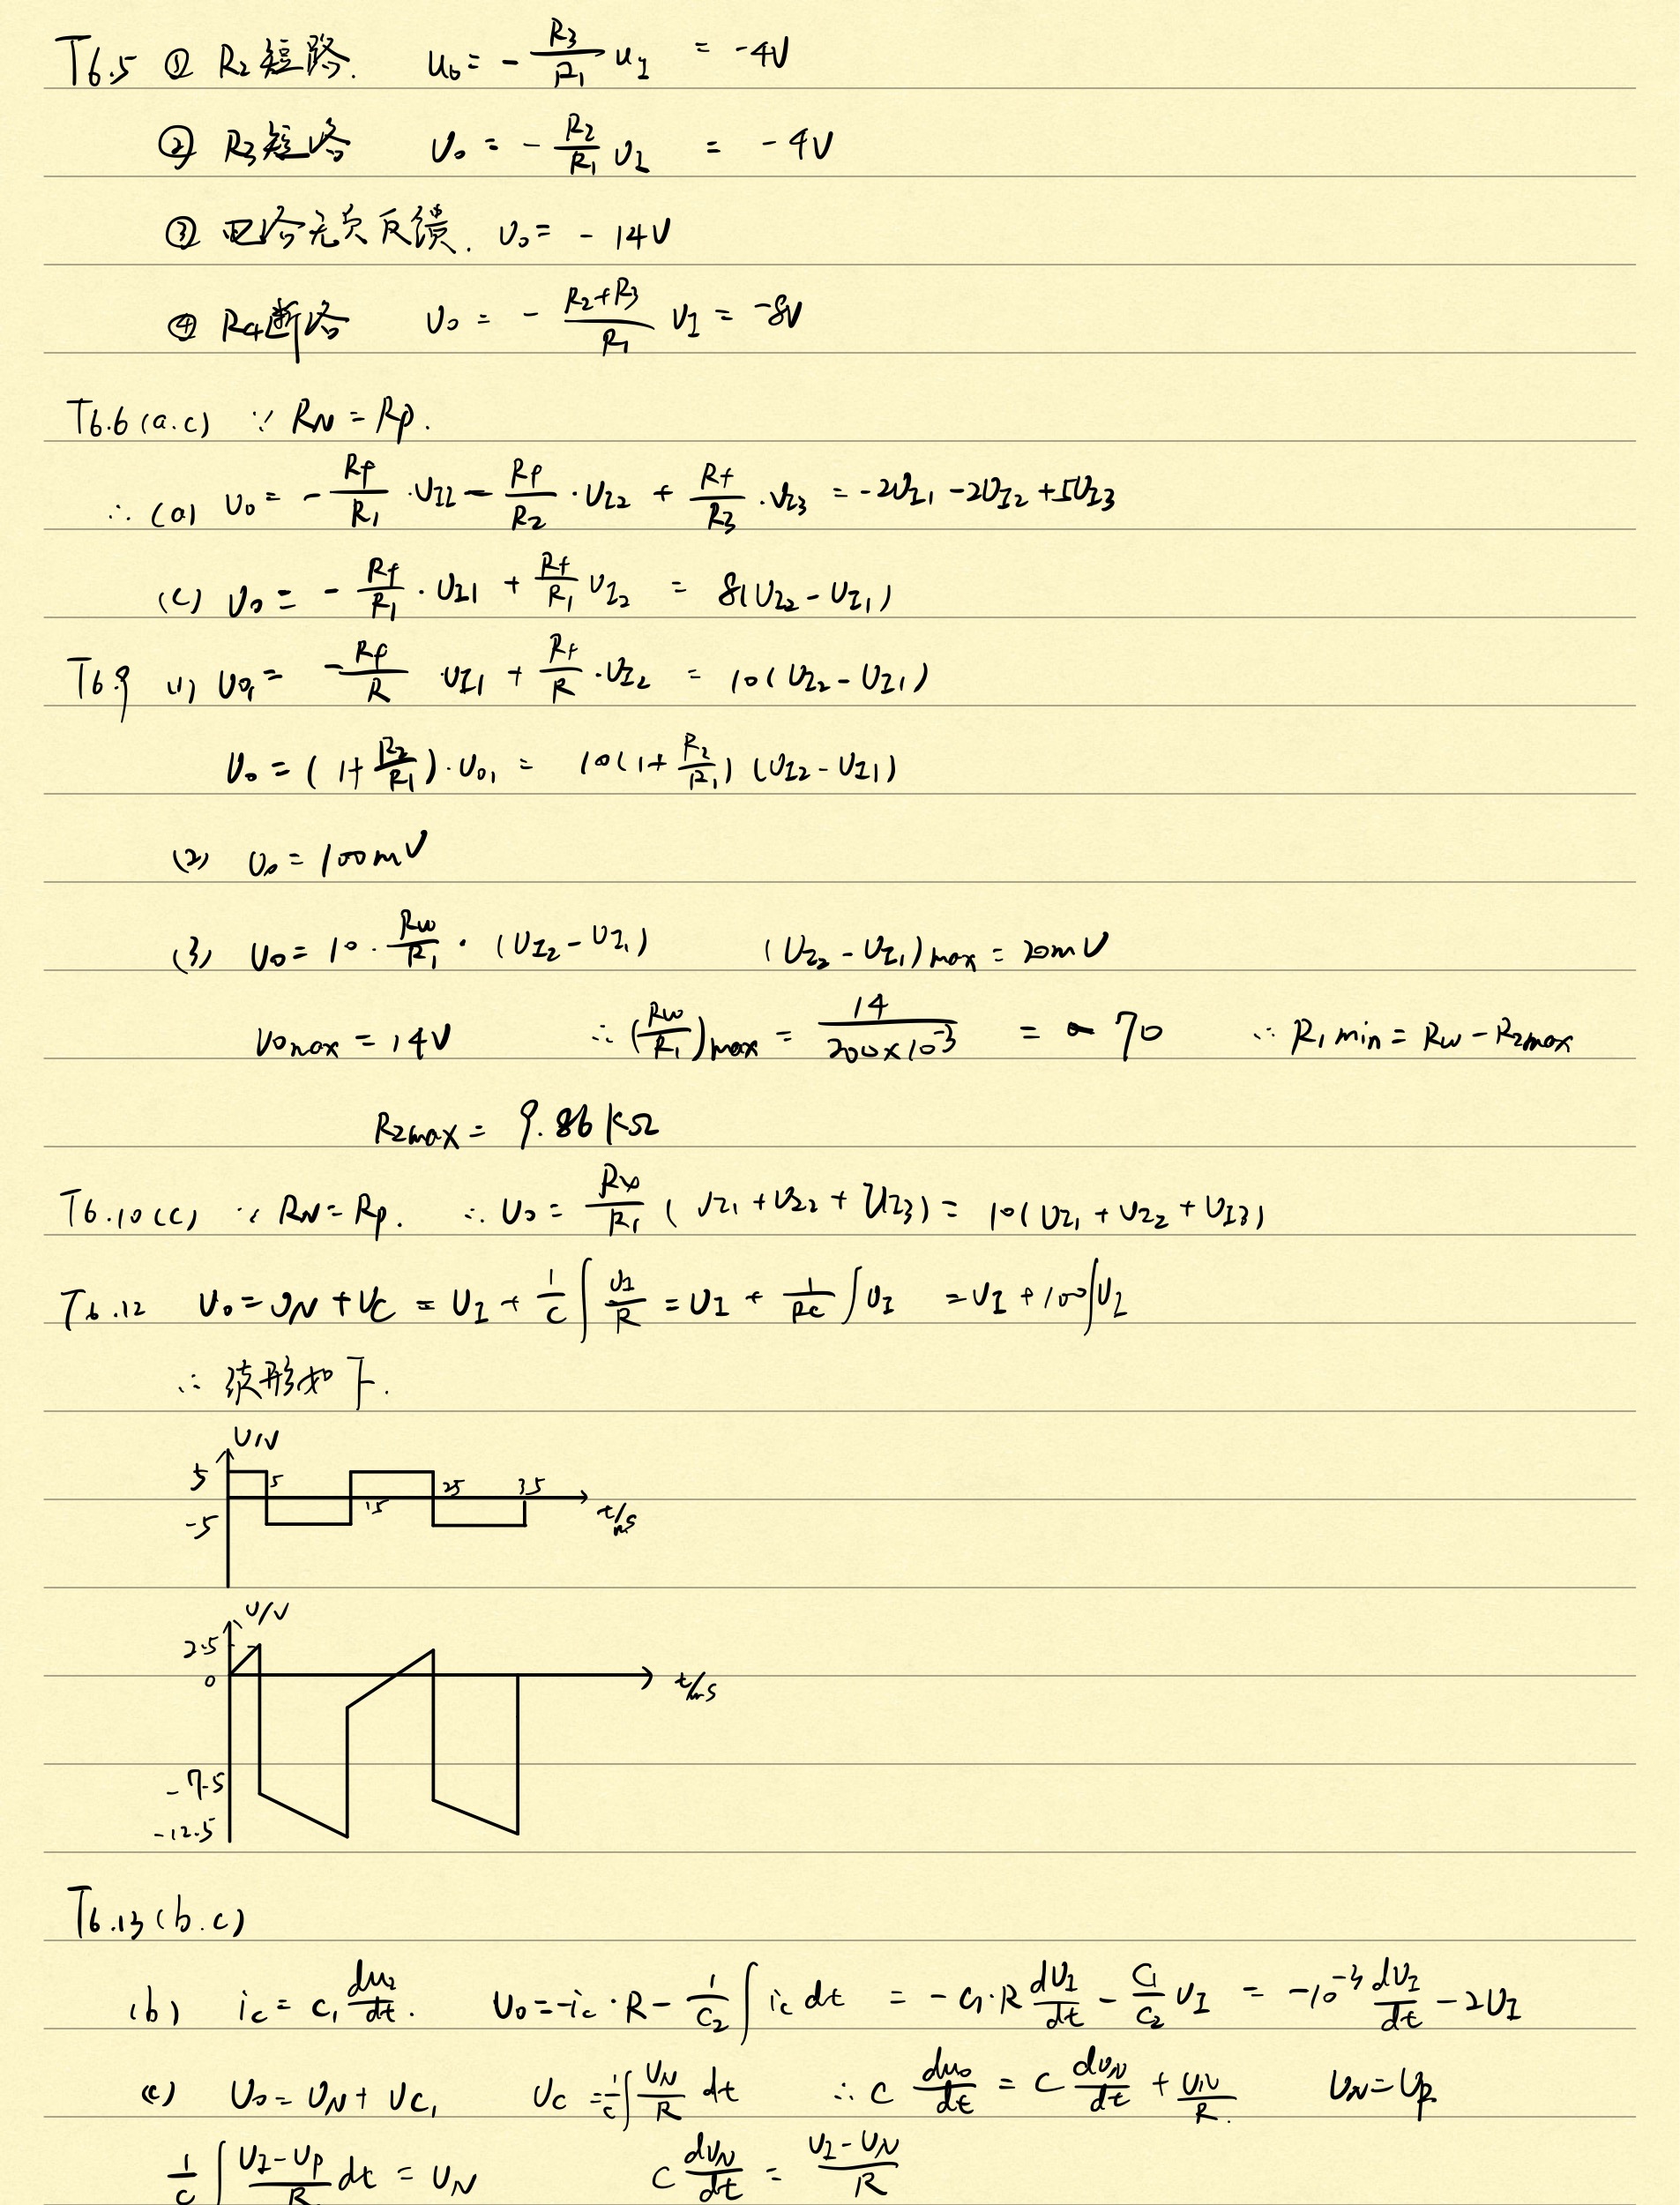 T6.5 ① R2短路. u0 = -R3/R1 uI = -4V
② R3短路 U0 = -R2/R1 UI = -4V
③ 电路无负反馈. U0 = -14V
④ R4断路 U0 = -(R2+R3)/R1 UI = -8V
T6.6 (a.c) ∵ RN = Rp.
∴ (a) U0 = -Rf/R1 · UI1 - Rf/R2 · UI2 + Rf/R3 · UI3 = -2UI1 - 2UI2 + 5UI3
(c) U0 = -Rf/R1 · UI1 + Rf/R1 UI2 = 8(UI2 - UI1)
T6.9 (1) U01 = -Rf/R · UI1 + Rf/R · UI2 = 10(UI2 - UI1)
U0 = (1+R2/R1) · U01 = 10(1+R2/R1)(UI2 - UI1)
(2) U0 = 100mV
(3) U0 = 10 · Rw/R1 · (UI2 - UI1) (UI2 - UI1)max = 20mV
U0max = 14V ∴ (Rw/R1)max = 14/(200×10^-3) = 70 ∴ R1min = Rw - R2max
R2max = 9.86kΩ
T6.10(c) ∵ RN = Rp. ∴ U0 = Rf/R1 (UI1 + UI2 + UI3) = 10(UI1 + UI2 + UI3)
T6.12 U0 = UN + UC = UI + 1/C ∫ UI/R = UI + 1/RC ∫ UI = UI + 100∫UI
∴ 波形如下.
U/V
5 5 15 25 35
-5 t/ms
U/V
2.5
0 t/ms
-7.5
-12.5
T6.13 (b.c)
(b) ic = C1 duI/dt. U0 = -ic · R - 1/C2 ∫ ic dt = -C1 · R dUI/dt - C1/C2 UI = -10^-3 dUI/dt - 2UI
(c) U0 = UN + UC1 UC = 1/C ∫ UN/R dt ∴ C du0/dt = C dUN/dt + UN/R. UN = Up
1/C ∫ (UI - Up)/R dt = UN C dUN/dt = (UI - UN)/R